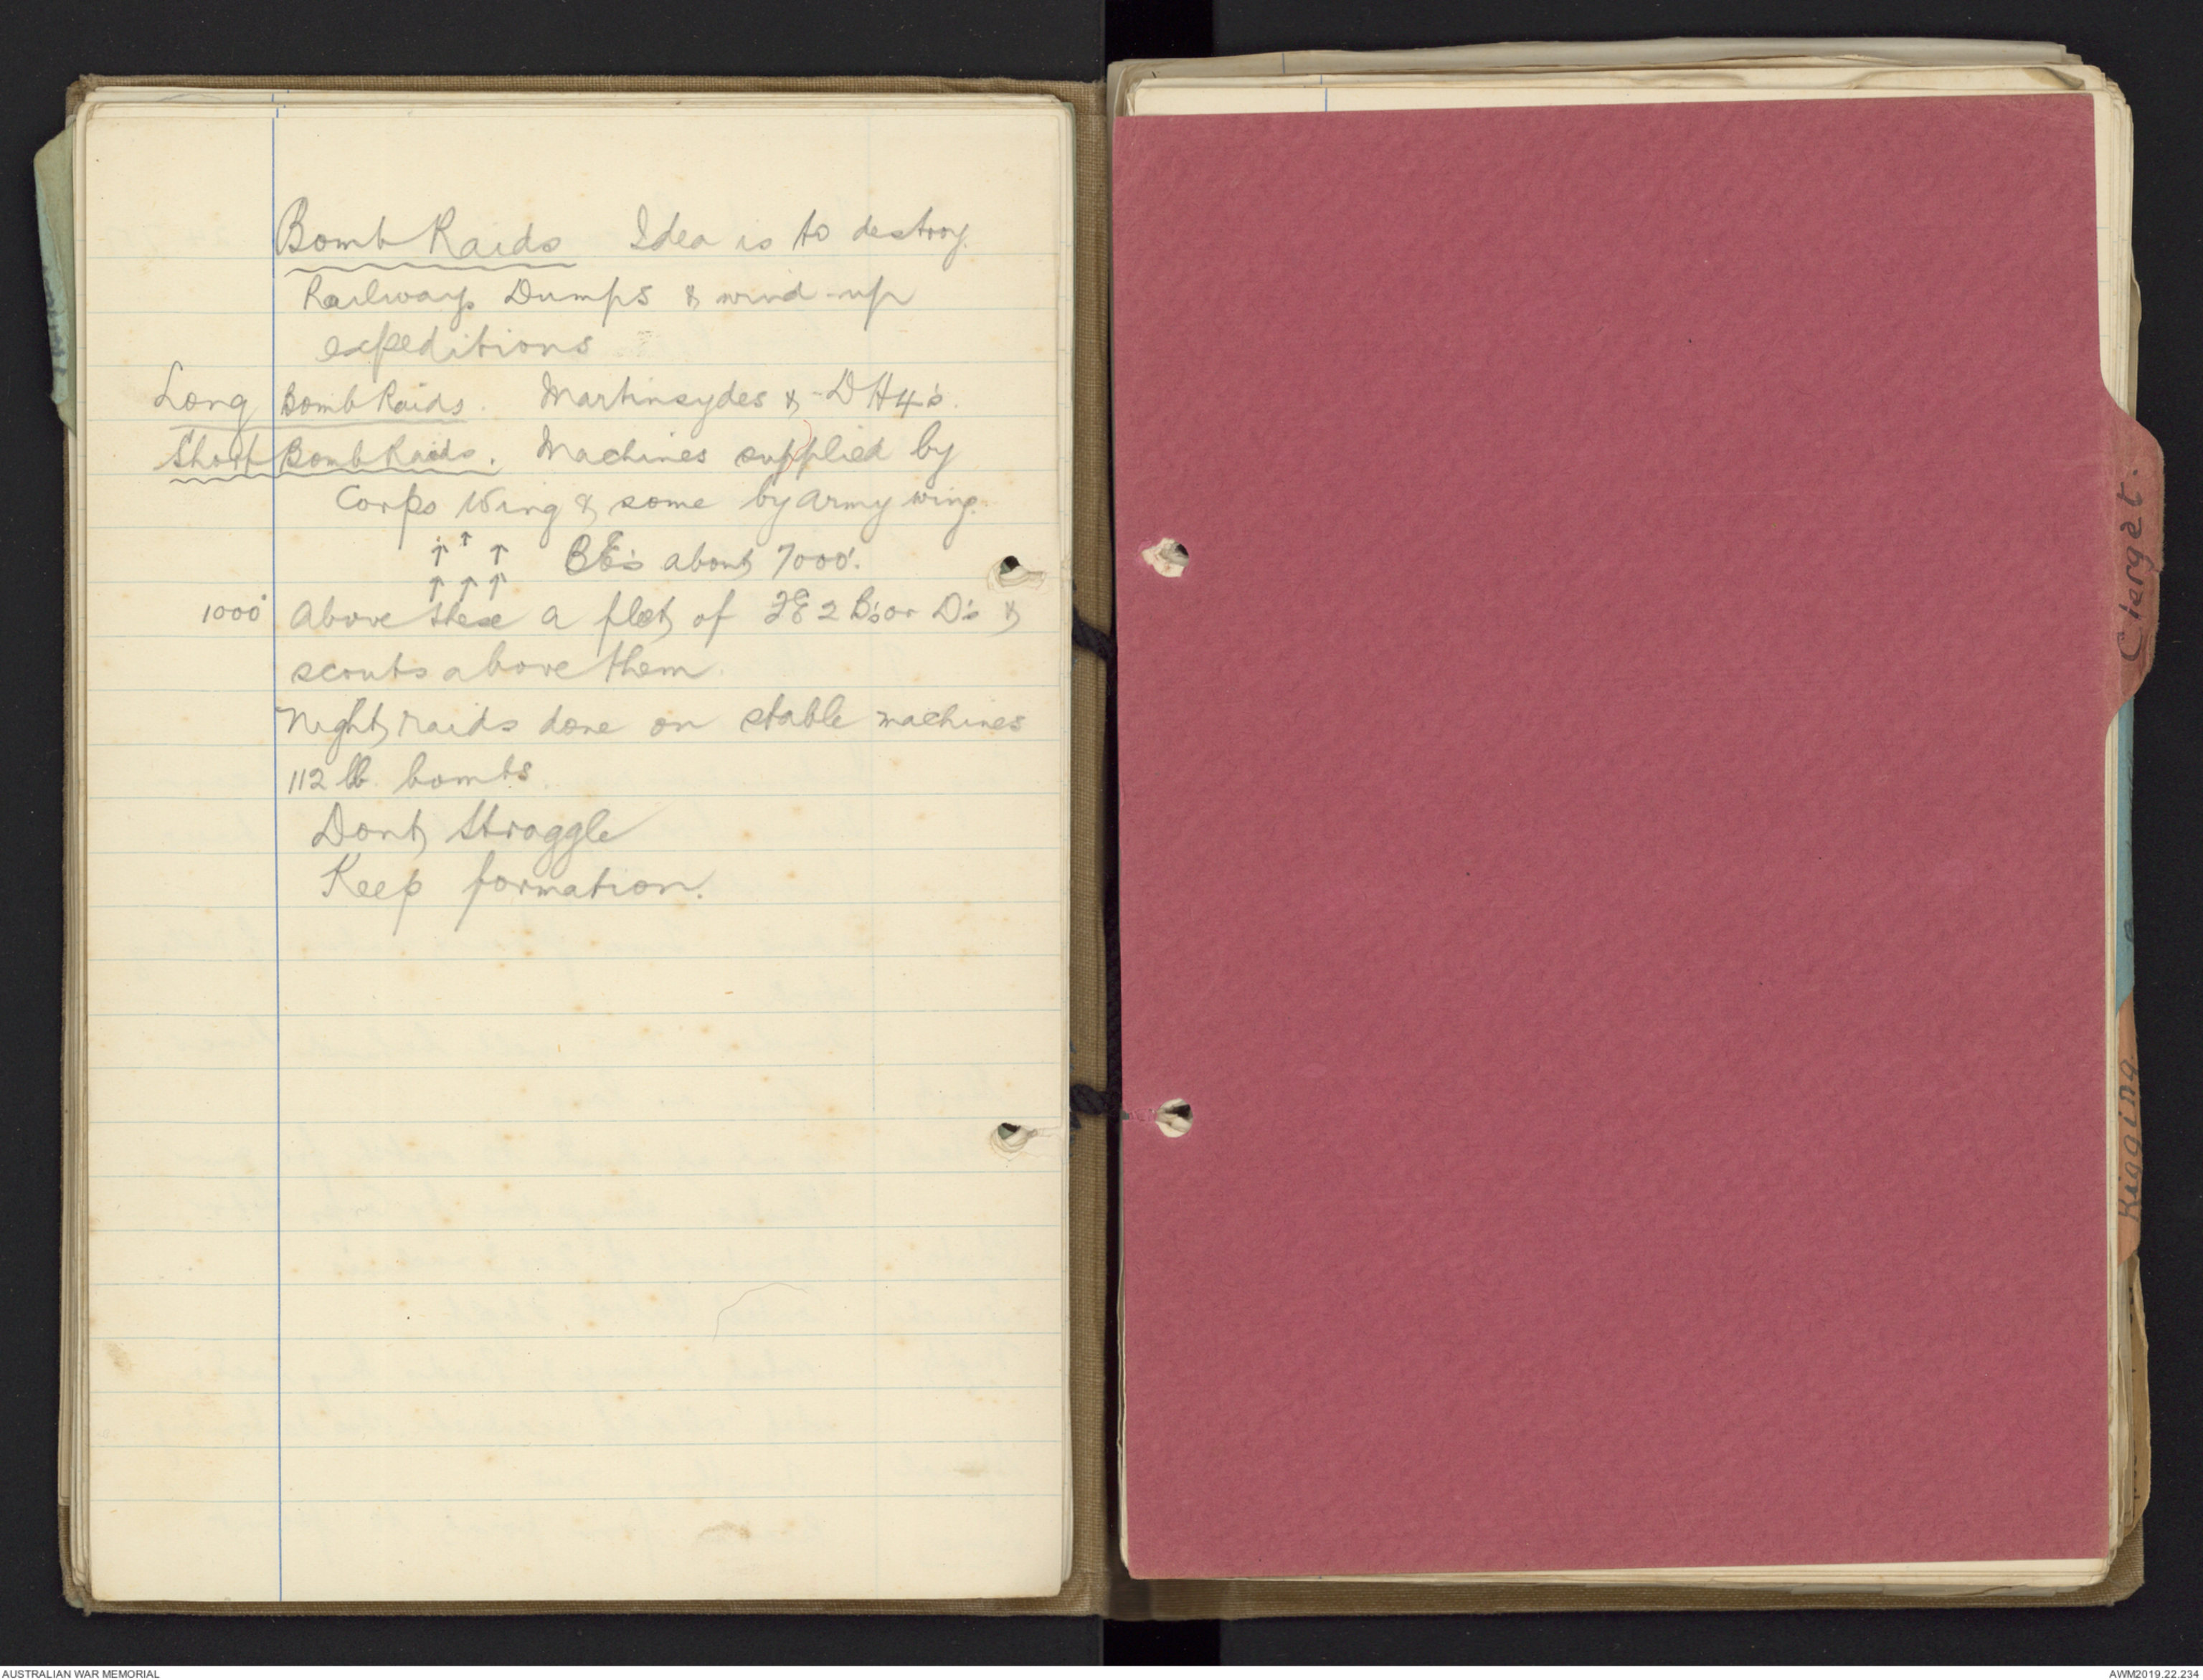 Bomb Raids Idea is to destroy
Railways Dumps & wind-up
expeditions
Long Bomb Raids. Martinsydes & DH4's.
Short Bomb Raids. Machines supplied by
Corps Wing & some by Army wing.
↑ ↑ ↑ BE's about 7000'.
↑ ↑ ↑
1000' above these a fleet of FE 2 B's or D's &
scouts above them.
Night raids done on stable machines
112 lb bombs.
Dont Straggle
Keep formation.
Clerget.
Rigging.
AUSTRALIAN WAR MEMORIAL
AWM2019.22.234